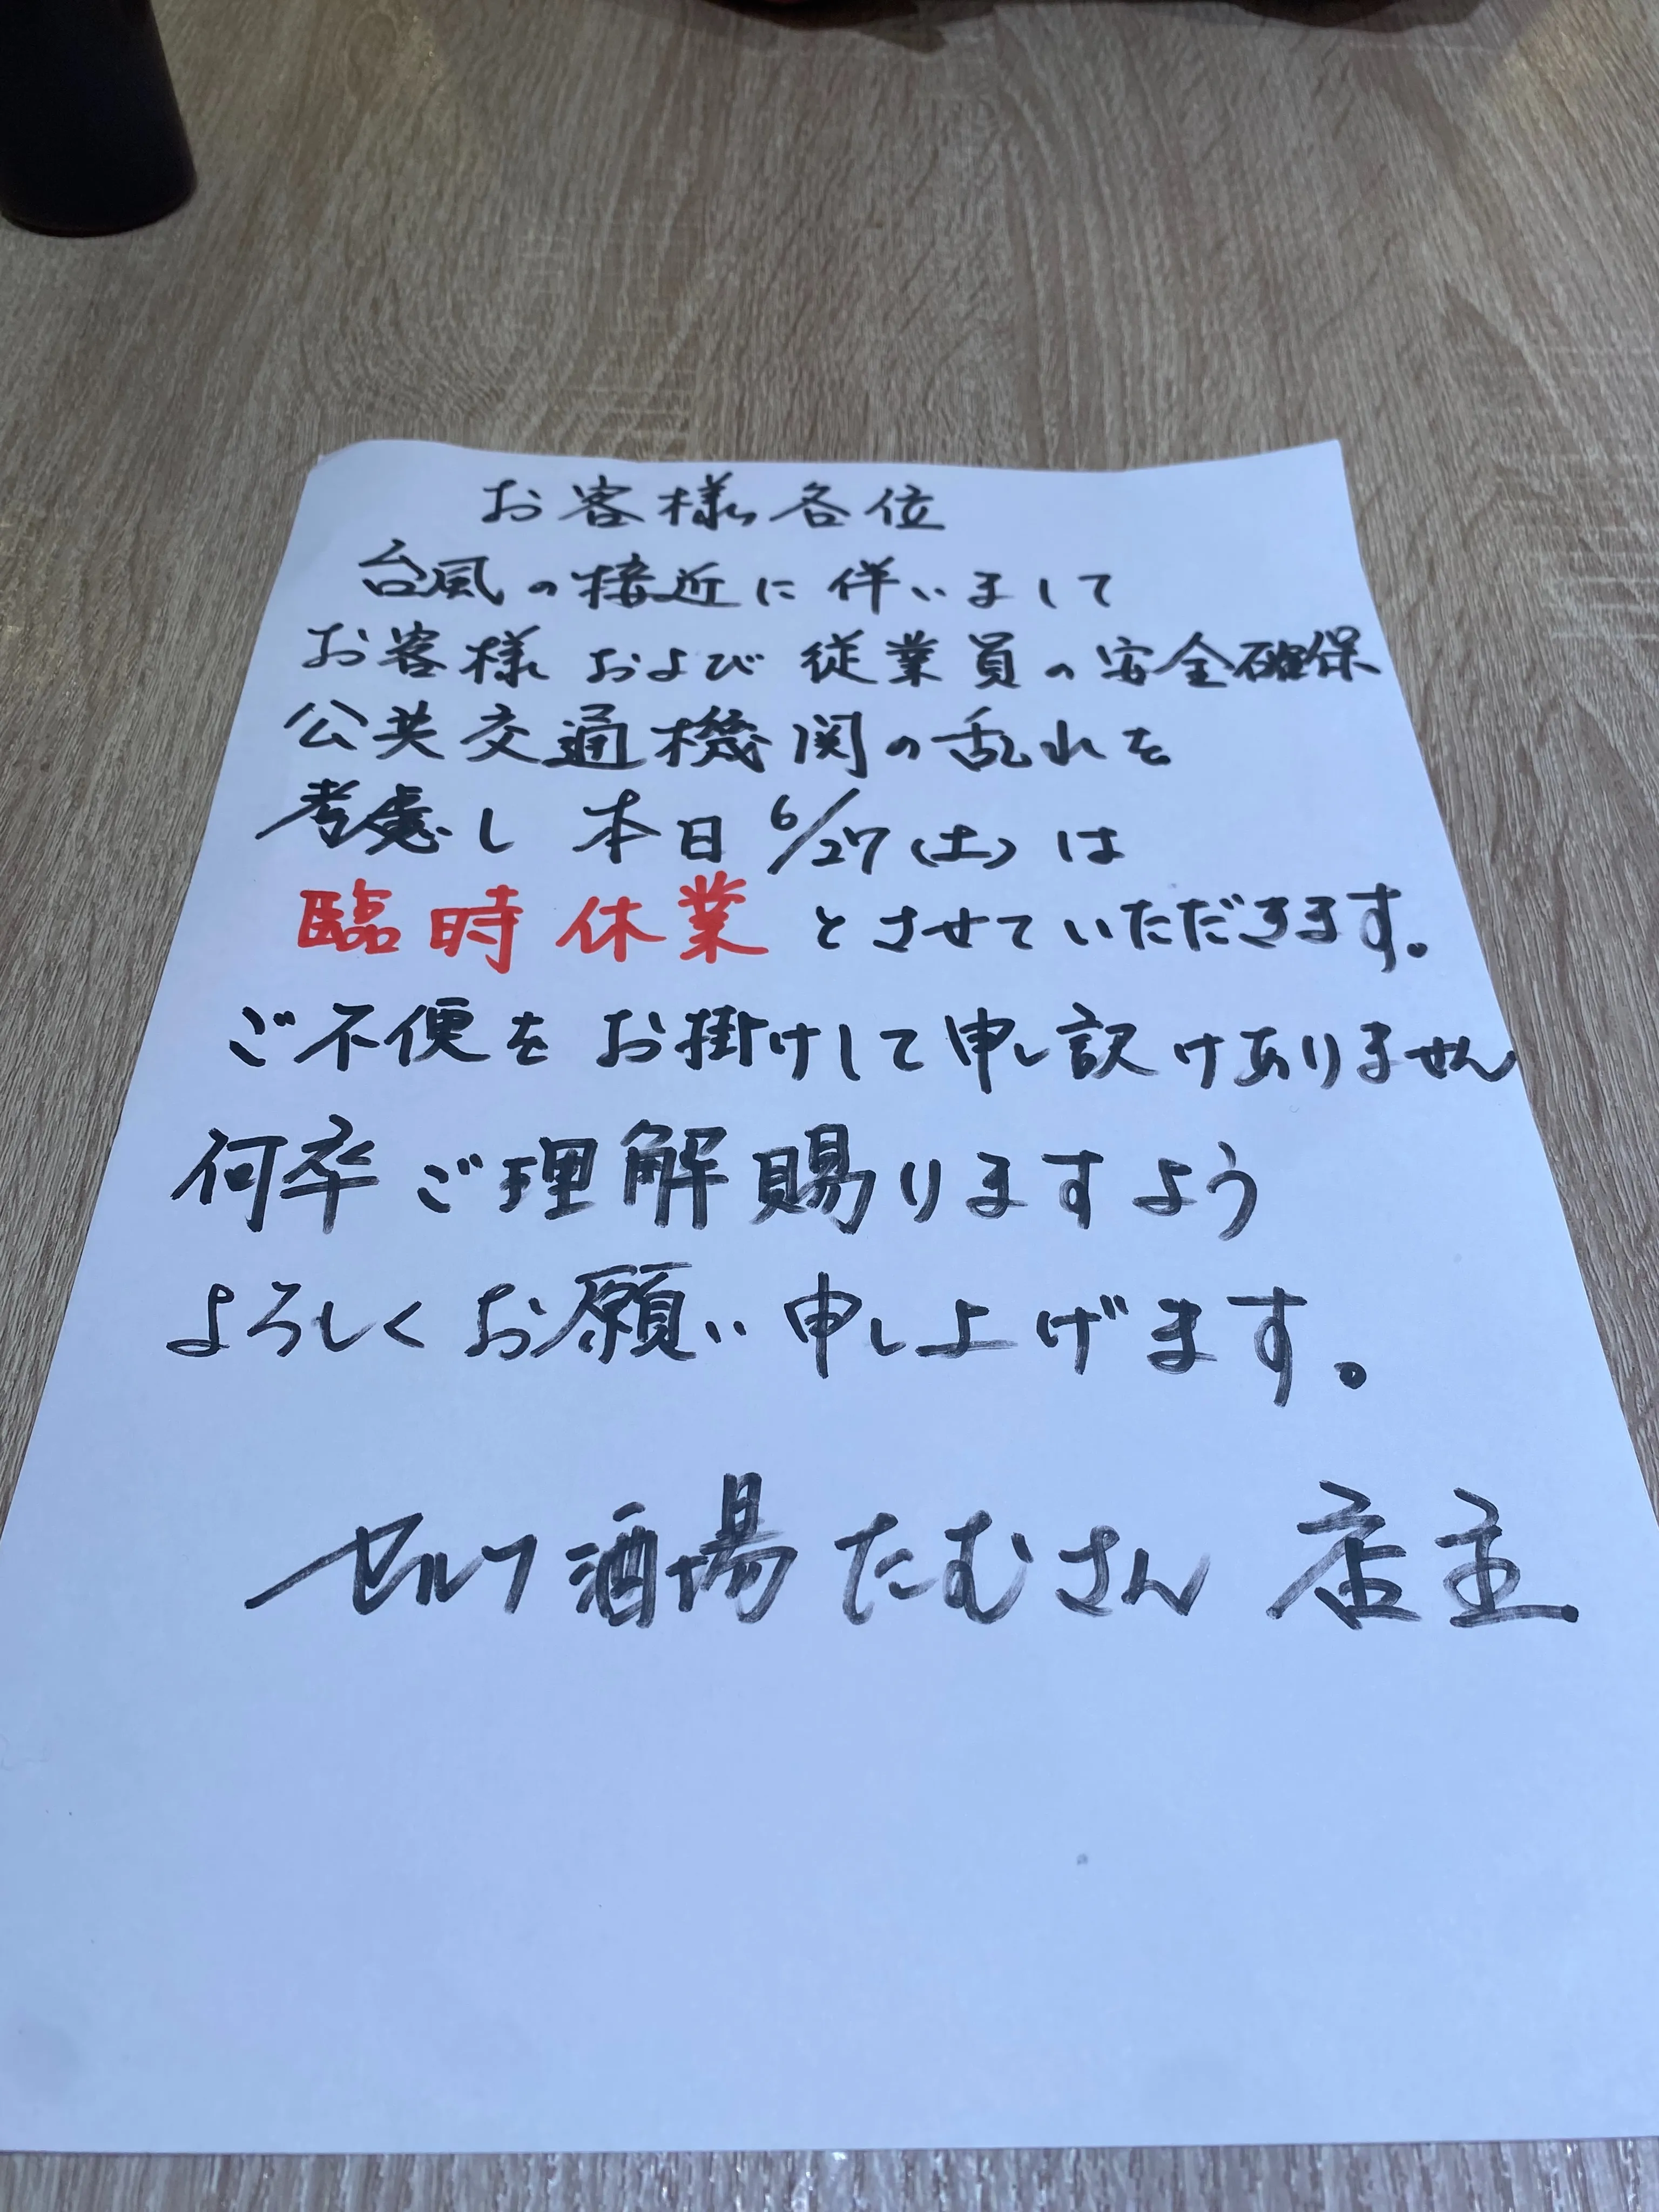 お客様各位
台風の接近に伴いまして
お客様および従業員の安全確保
公共交通機関の乱れを
考慮し 本日6/27(土)は
臨時休業とさせていただきます。
ご不便をお掛けして申し訳けありません
何卒ご理解賜りますよう
よろしくお願い申し上げます。
セルフ酒場たむさん 店主